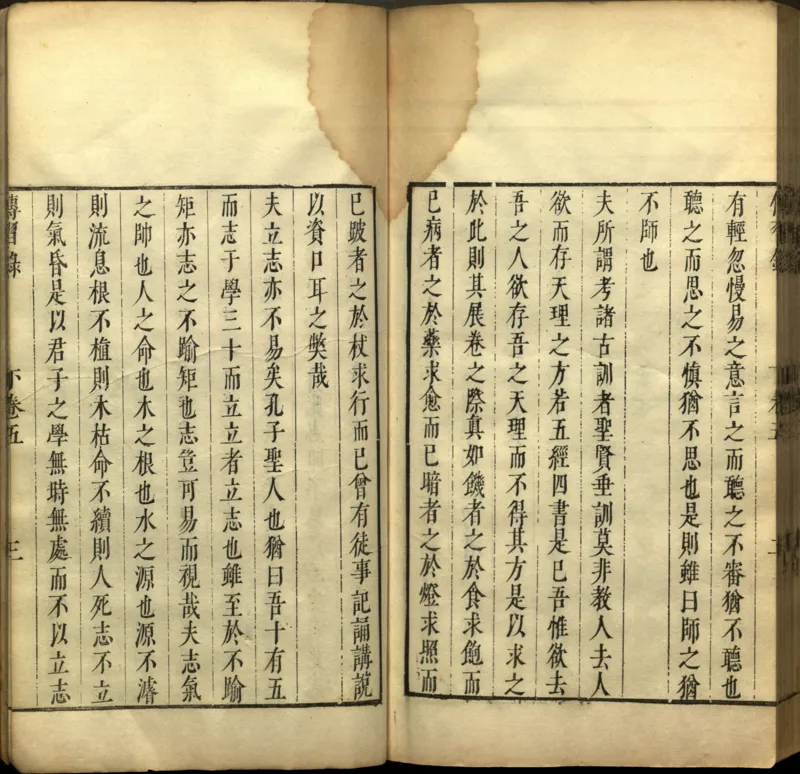 有輕忽慢易之意言之而聽之不審猶不聽也
聽之而思之不慎猶不思也是則雖曰師之猶
不師也
夫所謂考諸古訓者聖賢垂訓莫非教人去人
欲而存天理之方若五經四書是已吾惟欲去
吾之人欲存吾之天理而不得其方是以求之
於此則其展卷之際真如饑者之於食求飽而
已病者之於藥求愈而已暗者之於燈求照而
已跛者之於杖求行而已曾有徒事記誦講說
以資口耳之弊哉
夫立志亦不易矣孔子聖人也猶曰吾十有五
而志于學三十而立立者立志也雖至於不踰
矩亦志之不踰矩也志豈可易而視哉夫志氣
之帥也人之命也木之根也水之源也源不濬
則流息根不植則木枯命不續則人死志不立
則氣昏是以君子之學無時無處而不以立志
傳習錄 下卷五 三